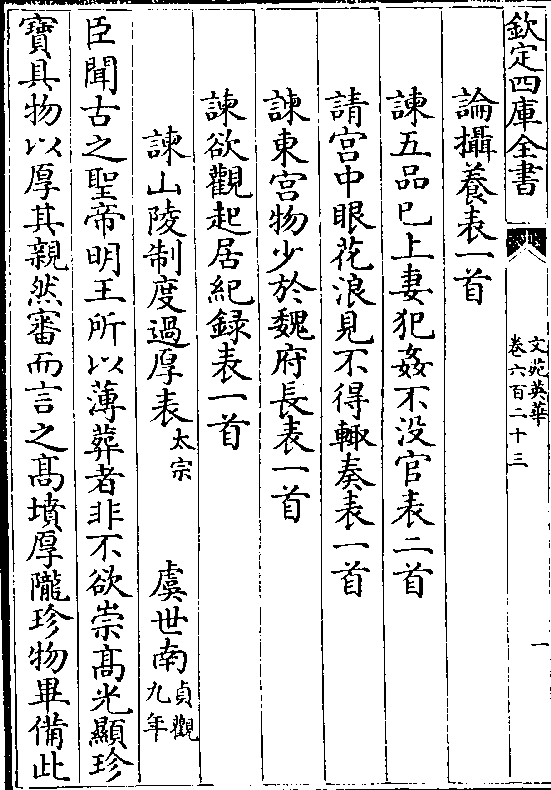 欽定四庫全書
文苑英華
卷六百二十三
一
論攝養表一首
諫五品已上妻犯姦不没官表二首
請宫中眼花浪見不得輙奏表一首
諫東宫物少於魏府長表一首
諫欲觀起居紀録表一首
諫山陵制度過厚表太宗 虞世南貞觀九年
臣聞古之聖帝明王所以薄葬者非不欲崇髙光顯珍
寶具物以厚其親然審而言之髙墳厚隴珍物畢備此